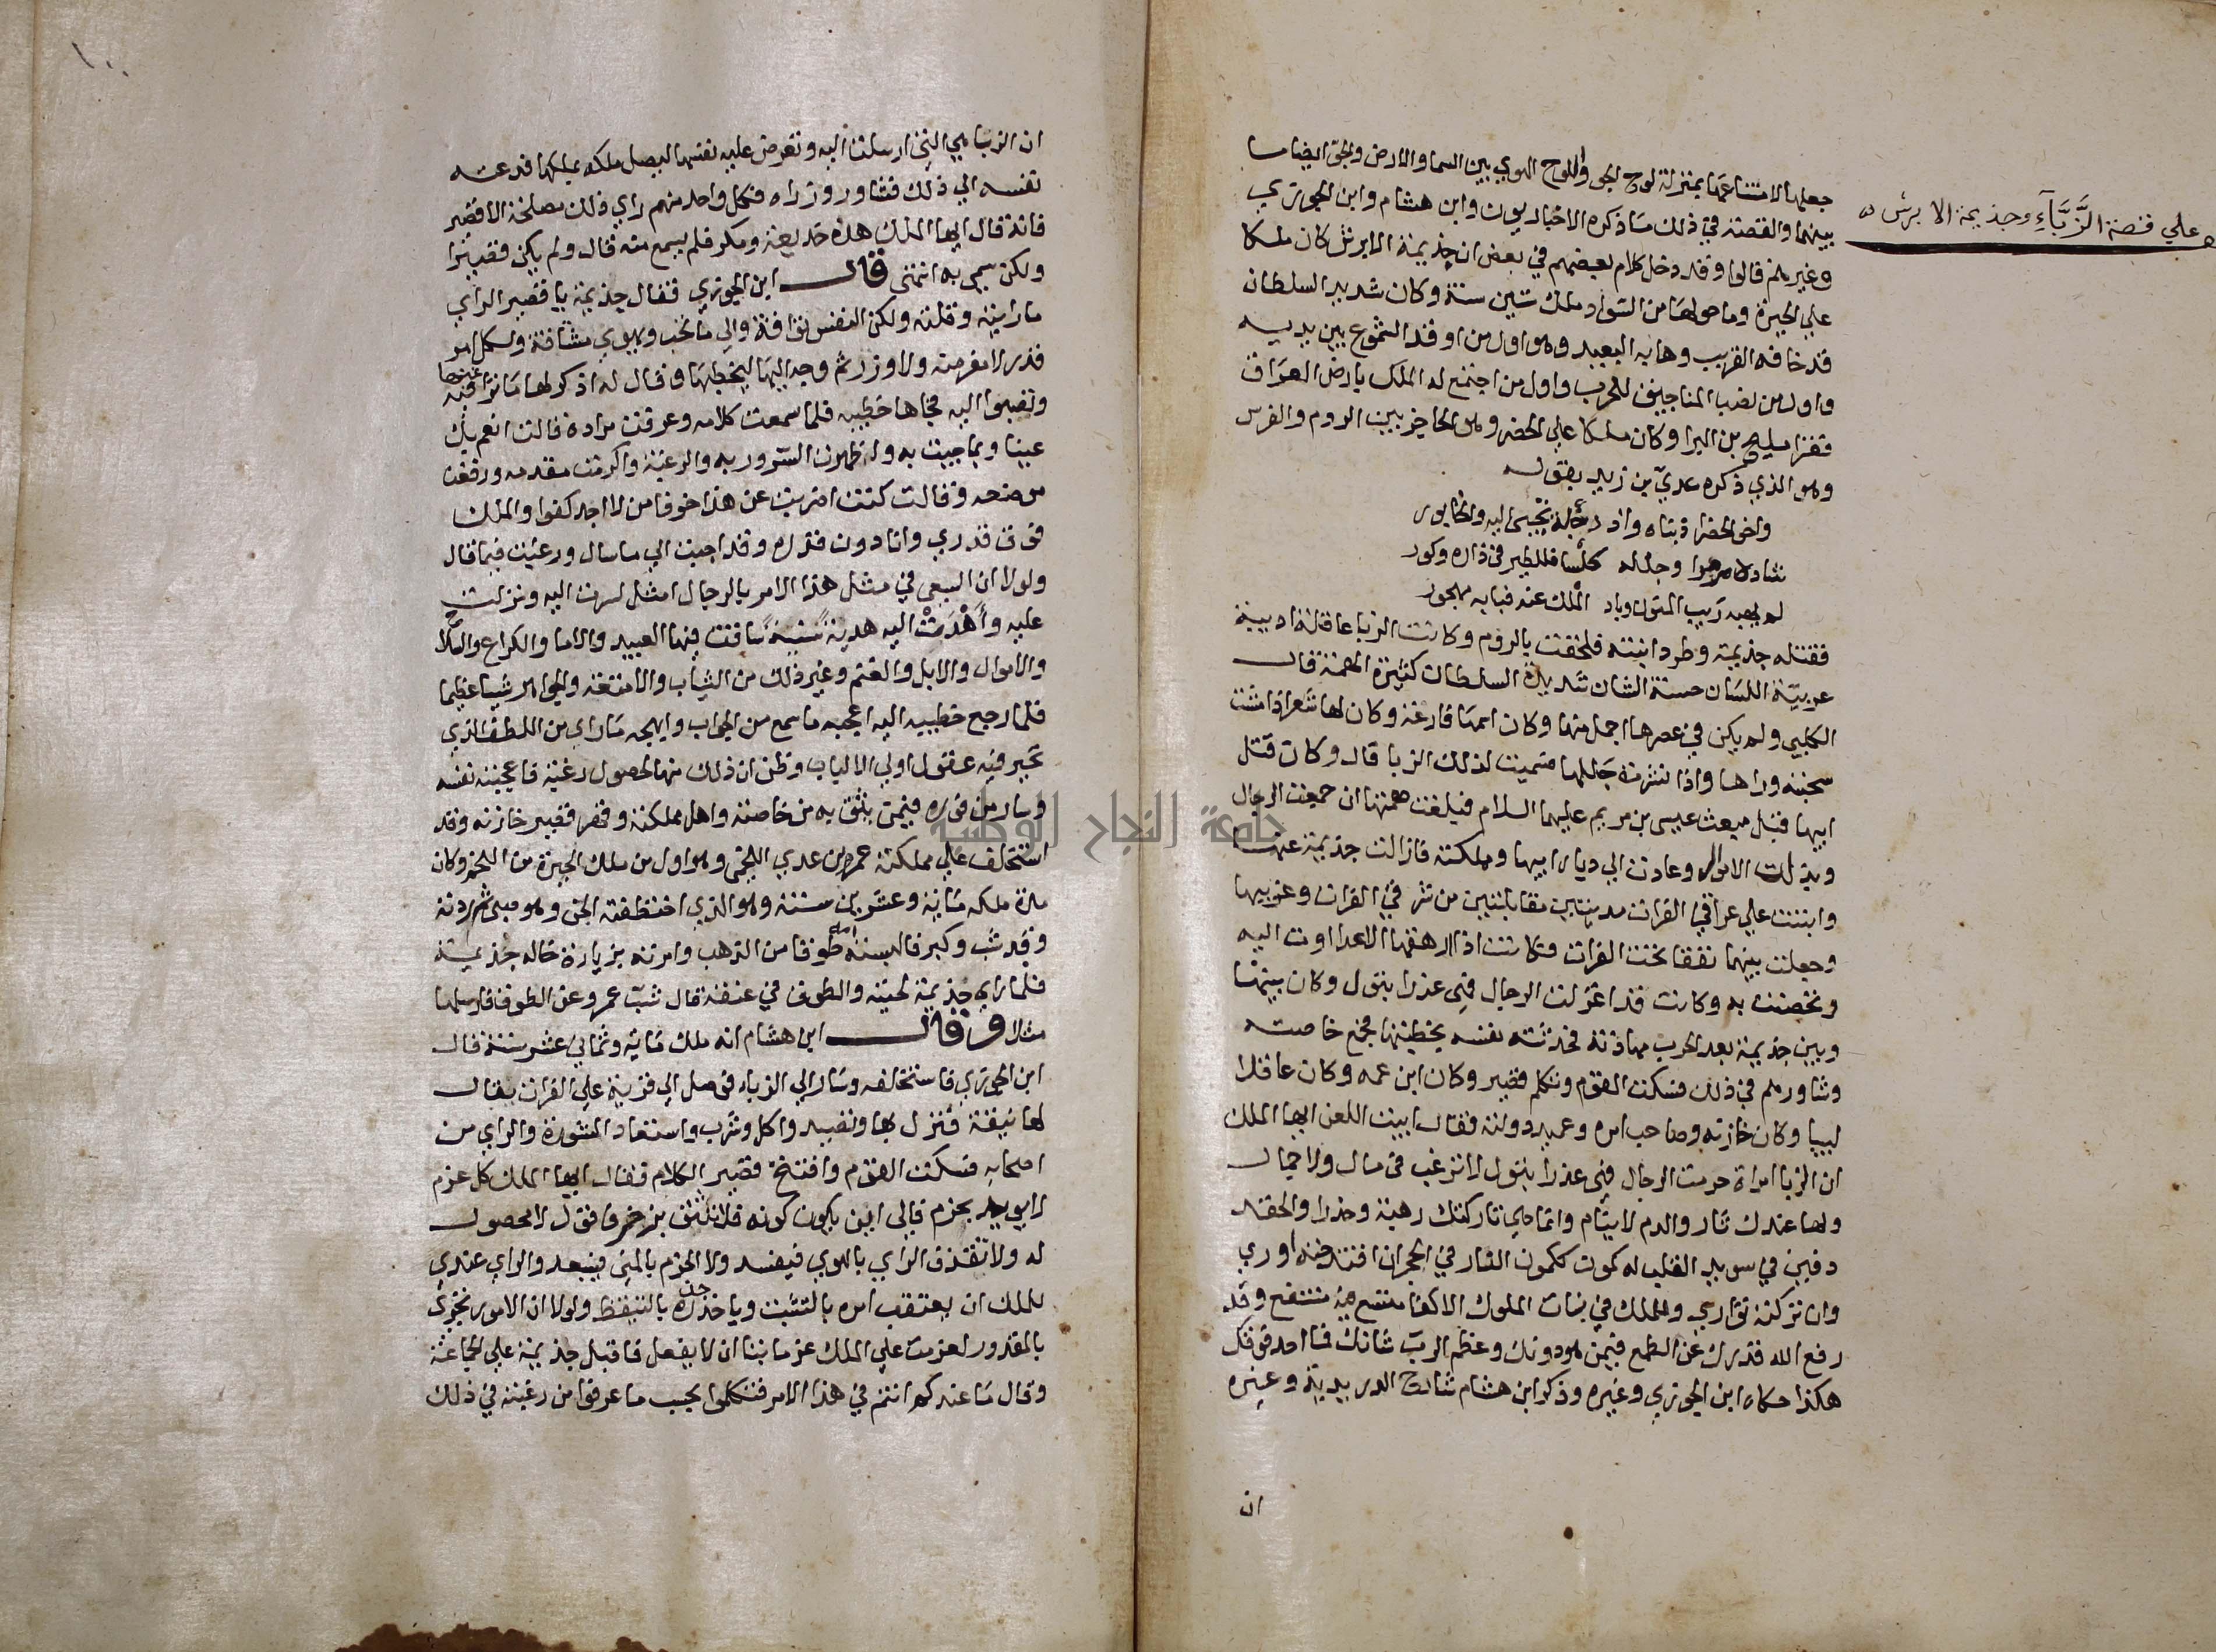 علي قصة الزَّبَّآءِ وجذيمة الابرش
جعلها لامتناعها بمنزلة لوح الجو واللوح الهوي بين السما والارض والجو ايضا ما
بينهما والقصة في ذلك مَا ذكره الاخباريون وابن هشام وابن الجوزي
وغيرهم قالوا وقد دخل كلام بعضهم في بعض ان جذيمة الابرش كان ملكا
علي الحيرة وما حولها من السواد ملك ستين سنة وكان شديد السلطان
قد خافه القريب وهابه البعيد وهو اول من اوقد الشموع بين يديه
واول من نصب المناجيق للحرب واول من اجتمع له الملك بارض العراق
فغزا مليح بن البرا وكان ملكا علي الحضر وهو الحاجز بين الروم والفرس
وهو الذي ذكره عدي بن زيد بقوله
واخو الحضر اذ بناه واذ دجلة تجبي اليه والخابور
شاده مرمرا وجلله كلسا فللطير في ذراه وكور
لم يهبه ريب المنون وباد الملك عنه فبابه مهجور
فقتله جذيمة وطرد ابنته فلحقت بالروم وكانت الزبا عاقلة اديبة
عربية اللسان حسنة الشان شديدة السلطان كثيرة الهمة قال
الكلبي ولم يكن في عصرها اجمل منها وكان اسمها فارغة وكان لها شعر اذا مشت
سحبته وراها واذا نشرته جَللها فسميت لذلك الزبا قال وكان قتل
ابيها قبل مبعث عيسى بن مريم عليهما السلام فبلغت همتها ان جمعت الرجال
وبذلت الاموال وعادت الي ديار ابيها ومملكته فازالت جذيمة عنها
وابتنت علي عراقي الفرات مدينتين متقابلتين من شرقي الفرات وغربيها
وجعلت بينهما نفقا تحت الفرات وكانت اذا ارهقها الاعدا اوت اليه
وتحصنت به وكانت قد اعتزلت الرجال فهي عذرا بتول وكان بينها
وبين جذيمة بعد الحرب مهادنة فحدثته نفسه بخطبتها فجمع خاصته
وشاورهم في ذلك فسكت القوم وتكلم قصير وكان ابن عمه وكان عاقلا
لبيبا وكان خازنه وصاحب امره وعميد دولته فقال ابيت اللعن ايها الملك
ان الزبا امراة حرمت الرجال فهي عذرا بتول لا ترغب في مال ولا جمال
ولها عندك ثار والدم لا ينام وانما هي تاركتك رهبة وحذرا والحقد
دفين في سويد القلب له كموت ككمون النار في الحجر ان اقتدحته اوري
وان تركته تواري وللملك في بنات الملوك الاكفا متسع فيه منتفع وقد
رفع الله قدرك عن الطمع فيمن هو دونك وعظم الرب شانك فما احد فوقك
هكذا حكاه ابن الجوزي وغيره وذكر ابن هشام شارح الدريدية وغيره
ان
١٠٠
ان الزبا هي التي ارسلت اليه وتعرض عليه نفسها ليصل ملكه بملكها فدعته
نفسه الي ذلك فشاور وزراه فكل واحد منهم راي ذلك مصلحة الا قصير
فانه قال ايها الملك هذه خديعة ومكر فلم يسمع منه قال ولم يكن قصيرا
ولكن سمي به انتهى قال ابن الجوزي فقال جذيمة يا قصير الراي
ما رايته وقلته ولكن النفس تواقة والي ما تحب وتهوي مشتاقة ولكل امر
قدر لا مفر منه ولا وزر ثم وجه اليها ليخطبها وقال له اذكر لها ما ترغبها فيه
وتصبوا اليه فجاها خطيبه فلما سمعت كلامه وعرفت مراده قالت انعم بك
عينا وبما جيت به وله اظهرت السرور به والرغبة واكرمت مقدمه ورفعت
موضعه وقالت كنت اضربت عن هذا خوفا من لا اجد كفوا والملك
فوق قدري وانا دون قدره وقد اجبت الي ما سال ورغبت فيما قال
ولولا ان السعي في مثل هذا الامر بالرجال امثل لسرت اليه ونزلت
عليه وأَهْدَتْ اليه هدية سنية ساقت فيها العبيد والاما والكراع والسلاح
والاموال والابل والغنم وغير ذلك من الثياب والامتعة والجواهر شييا عظيما
فلما رجع خطيبه اليه اعجبه ما سمع من الجواب وابهجه ما راي من اللطف الذي
تحير فيه عقول اولي الالباب وظن ان ذلك منها لحصول رغبة فاعجبته نفسه
وسار من فوره فيمن يثق به من خاصته واهل مملكته وفيهم قصير خازنه وقد
استخلف علي مملكته عمرو بن عدي اللخمي وهو اول من ملك الحيرة من اللخم وكان
مدة ملكه مَاية وعشرين سنة وهو الذي اختطفته الجن وهو صبي ثم ردته
وقد شب وكبر فالبسته امه طوقا من الذهب وامرته بزيارة خاله جذيمة
فلما راي جذيمة لحيته والطوق في عنقه قال شب عمرو عن الطوق فارسلها
مثلا وقال ابن هشام انه ملك ماية وثماني عشر سنة قال
ابن الجوزي فاستخلفه وسار الي الزباء فوصل الي قرية علي الفرات يقال
لها نيفة فنزل بها وتصيد واكل وشرب واستعاد المشورة والراي من
اصحابه فسكت القوم وافتتح قصير الكلام فقال ايها الملك كل عزم
لا يويد بحزم فالي اين يكون كونه فلا تثق بزخرف قول لا محصول
له ولا تقذف الراي بالهوي فيفسد ولا الحزم بالمني فيبعد والراي عندي
للملك ان يعتقب امره بالتثبت وياخذ حذره بالتيقظ ولولا ان الامور تجري
بالمقدور لعزمت علي الملك عزما بتا ان لا يفعل فاقبل جذيمة علي الجماعة
وقال مَا عندكم انتم في هذا الامر فتكلموا بحسب ما عرفوا من رغبته في ذلك
جامعة النجاح الوطنية